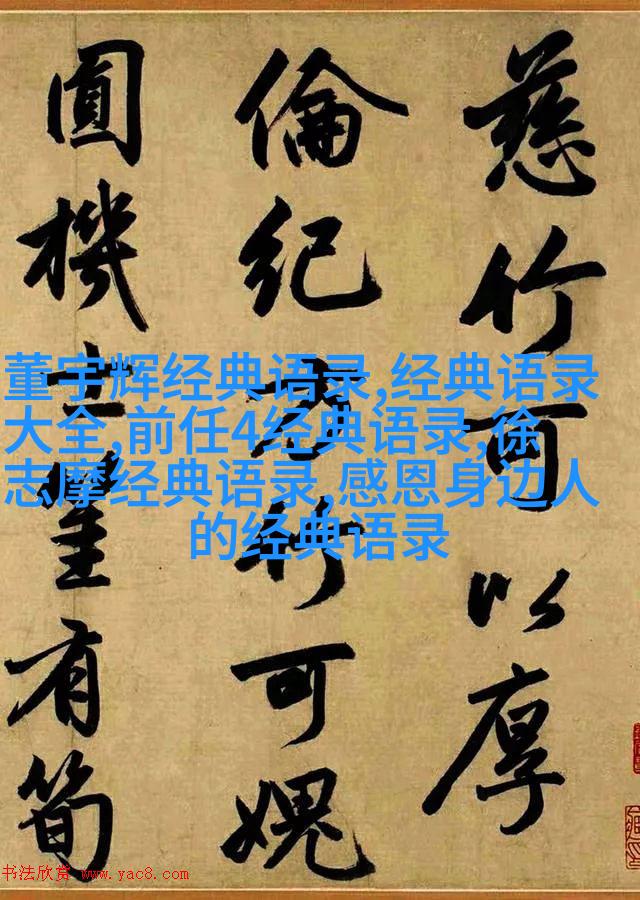 慈竹可以厚
倫紀方竹可媿
圓機士惟有筍
董宇辉经典语录,经典语录
大全,前任4经典语录,徐
志摩经典语录,感恩身边人
的经典语录
书法欣赏 www.yac8.com